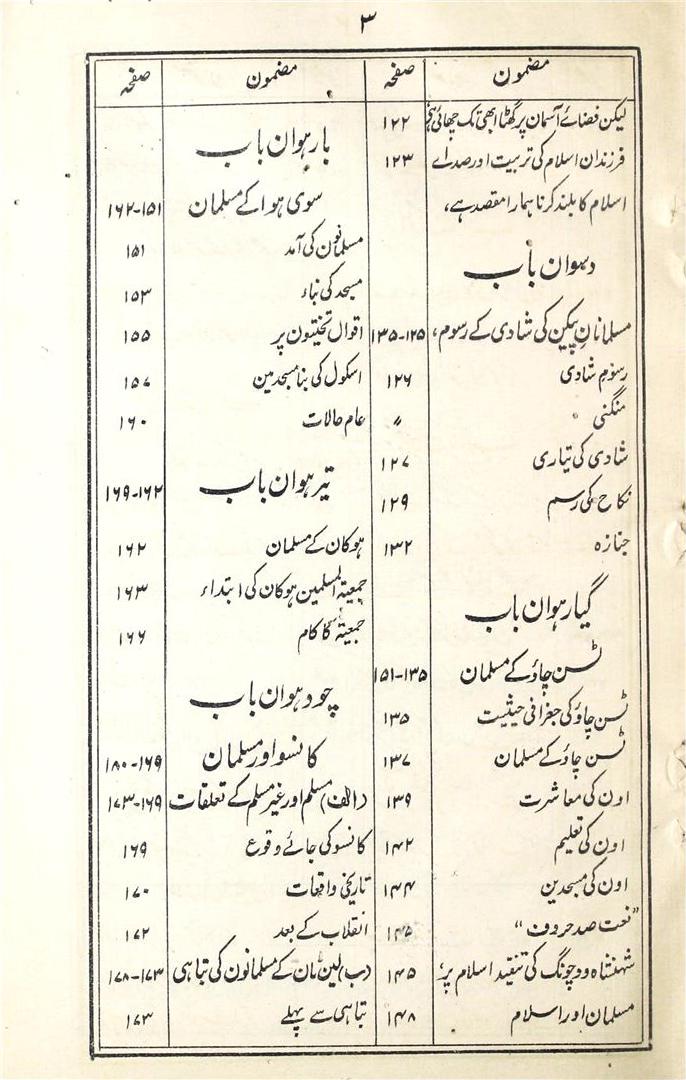 ۳
مضمون صفحہ مضمون صفحہ
لیکن فضائے آسمان پر گھٹا ابھی تک چھائی ہے ۱۲۲
فرزندان اسلام کی تربیت اور صداے ۱۲۳
اسلام کا بلند کرنا ہمارا مقصد ہے،
دہوان باب
مسلمانانِ پیکین کی شادی کے رسوم، ۱۲۵-۱۳۵
رسوم شادی ۱۲۶
منگنی 〃
شادی کی تیاری ۱۲۷
نکاح کی رسم ۱۲۹
جنازہ ۱۳۲
گیارہوان باب
ٹسن چاؤ کے مسلمان ۱۳۵-۱۵۱
ٹسن چاؤ کی جغرافی حیثیت ۱۳۵
ٹسن چاؤ کے مسلمان ۱۳۷
اون کی معاشرت ۱۳۹
اون کی تعلیم ۱۴۲
اون کی مسجدین ۱۴۴
”نعت صد حروف“ ۱۴۵
شہنشاہ ووچونگ کی تنقید اسلام پر، ۱۴۵
مسلمان اور اسلام ۱۴۸
بارہوان باب
سوی ہوا کے مسلمان ۱۵۱-۱۶۲
مسلمانون کی آمد ۱۵۱
مسجد کی بناء ۱۵۳
اقوال تختیون پر ۱۵۵
اسکول کی بنا مسجد مین ۱۵۷
عام حالات ۱۶۰
تیرہوان باب ۱۶۲-۱۶۹
ہوکان کے مسلمان ۱۶۲
جمعیۃ المسلمین ہوکان کی ابتداء ۱۶۳
جمعیۃ کا کام ۱۶۶
چودہوان باب
کانسو اور مسلمان ۱۶۹-۱۸۰
(الف) مسلم اور غیر مسلم کے تعلقات ۱۶۹-۱۷۳
کانسو کی جائے وقوع ۱۶۹
تاریخی واقعات ۱۷۰
انقلاب کے بعد ۱۷۲
(ب) لین مان کے مسلمانون کی تباہی ۱۷۳-۱۷۸
تباہی سے پہلے ۱۷۳